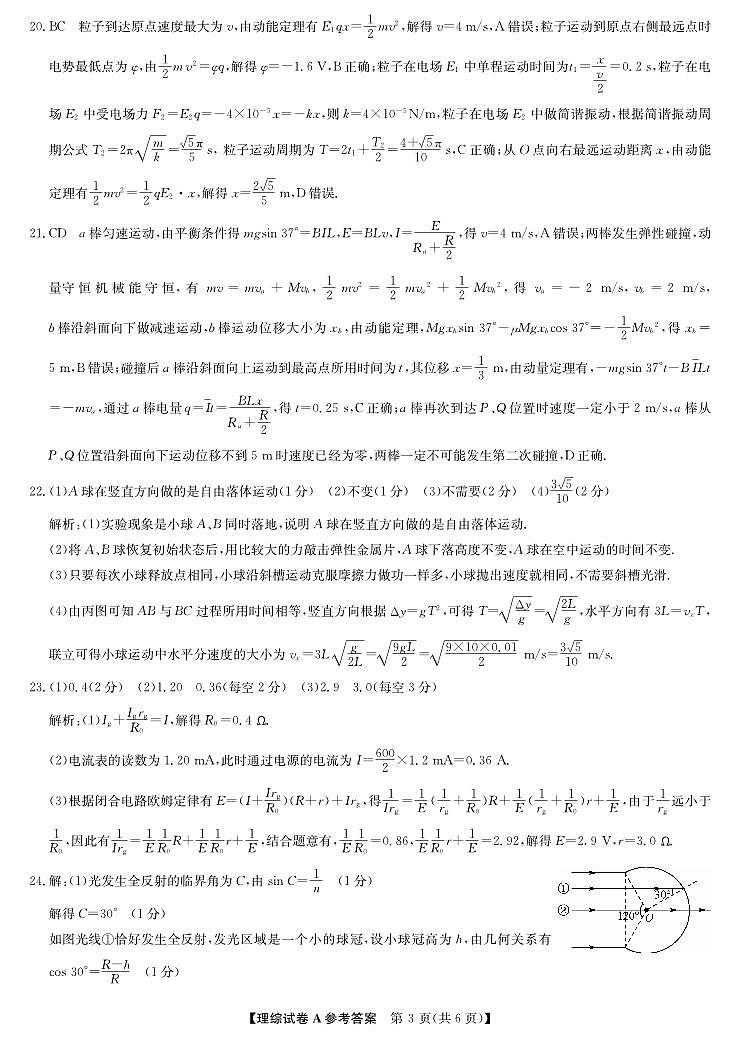 20. BC 粒子到达原点速度最大为 v,由动能定理有 E₁qx=1/2 mv²,解得 v=4 m/s,A 错误;粒子运动到原点右侧最远点时
电势最低点为 φ,由 1/2 mv²=φq,解得 φ=-1.6 V,B 正确;粒子在电场 E₁ 中单程运动时间为 t₁=x/(v/2)=0.2 s,粒子在电
场 E₂ 中受电场力 F₂=E₂q=-4×10⁻⁵x=-kx,则 k=4×10⁻⁵ N/m,粒子在电场 E₂ 中做简谐振动,根据简谐振动周
期公式 T₂=2π√(m/k)=√5π/5 s, 粒子运动周期为 T=2t₁+T₂/2=(4+√5π)/10 s,C 正确;从 O 点向右最远运动距离 x,由动能
定理有 1/2 mv²=1/2 qE₂·x,解得 x=2√5/5 m,D 错误.
21. CD a 棒匀速运动,由平衡条件得 mgsin 37°=BIL,E=BLv,I=E/(Rₐ+R/2),得 v=4 m/s,A 错误;两棒发生弹性碰撞,动
量守恒机械能守恒,有 mv=mvₐ+Mv_b, 1/2 mv²=1/2 mvₐ²+1/2 Mv_b²,得 vₐ=-2 m/s, v_b=2 m/s,
b 棒沿斜面向下做减速运动,b 棒运动位移大小为 x_b,由动能定理,Mgx_b sin 37°-μMgx_b cos 37°=-1/2 Mv_b²,得 x_b=
5 m,B 错误;碰撞后 a 棒沿斜面向上运动到最高点所用时间为 t,其位移 x=1/3 m,由动量定理有,-mgsin 37°t-BI̅Lt
=-mvₐ,通过 a 棒电量 q=I̅t=BLx/(Rₐ+R/2),得 t=0.25 s,C 正确;a 棒再次到达 P、Q 位置时速度一定小于 2 m/s,a 棒从
P、Q 位置沿斜面向下运动位移不到 5 m 时速度已经为零,两棒一定不可能发生第二次碰撞,D 正确.
22. (1)A 球在竖直方向做的是自由落体运动(1 分) (2)不变(1 分) (3)不需要(2 分) (4)3√5/10(2 分)
解析:(1)实验现象是小球 A、B 同时落地,说明 A 球在竖直方向做的是自由落体运动.
(2)将 A、B 球恢复初始状态后,用比较大的力敲击弹性金属片,A 球下落高度不变,A 球在空中运动的时间不变.
(3)只要每次小球释放点相同,小球沿斜槽运动克服摩擦力做功一样多,小球抛出速度就相同,不需要斜槽光滑.
(4)由丙图可知 AB 与 BC 过程所用时间相等,竖直方向根据 Δy=gT²,可得 T=√(Δy/g)=√(2L/g),水平方向有 3L=vₓT,
联立可得小球运动中水平分速度的大小为 vₓ=3L√(g/2L)=√(9gL/2)=√(9×10×0.01/2) m/s=3√5/10 m/s.
23. (1)0.4(2 分) (2)1.20 0.36(每空 2 分) (3)2.9 3.0(每空 3 分)
解析:(1)I_g+I_g r_g/R₀=I,解得 R₀=0.4 Ω.
(2)电流表的读数为 1.20 mA,此时通过电源的电流为 I=600/2×1.2 mA=0.36 A.
(3)根据闭合电路欧姆定律有 E=(I+Ir_g/R₀)(R+r)+Ir_g,得 1/Ir_g=1/E(1/r_g+1/R₀)R+1/E(1/r_g+1/R₀)r+1/E,由于 1/r_g 远小于
1/R₀,因此有 1/Ir_g=1/E 1/R₀ R+1/E 1/R₀ r+1/E,结合题意有,1/E 1/R₀=0.86,1/E 1/R₀ r+1/E=2.92,解得 E=2.9 V,r=3.0 Ω.
24. 解:(1)光发生全反射的临界角为 C,由 sin C=1/n (1 分)
解得 C=30° (1 分)
如图光线①恰好发生全反射,发光区域是一个小的球冠,设小球冠高为 h,由几何关系有
cos 30°=(R-h)/R (1 分)
①
②
30°
120°
O
【理综试卷 A 参考答案 第 3 页(共 6 页)】